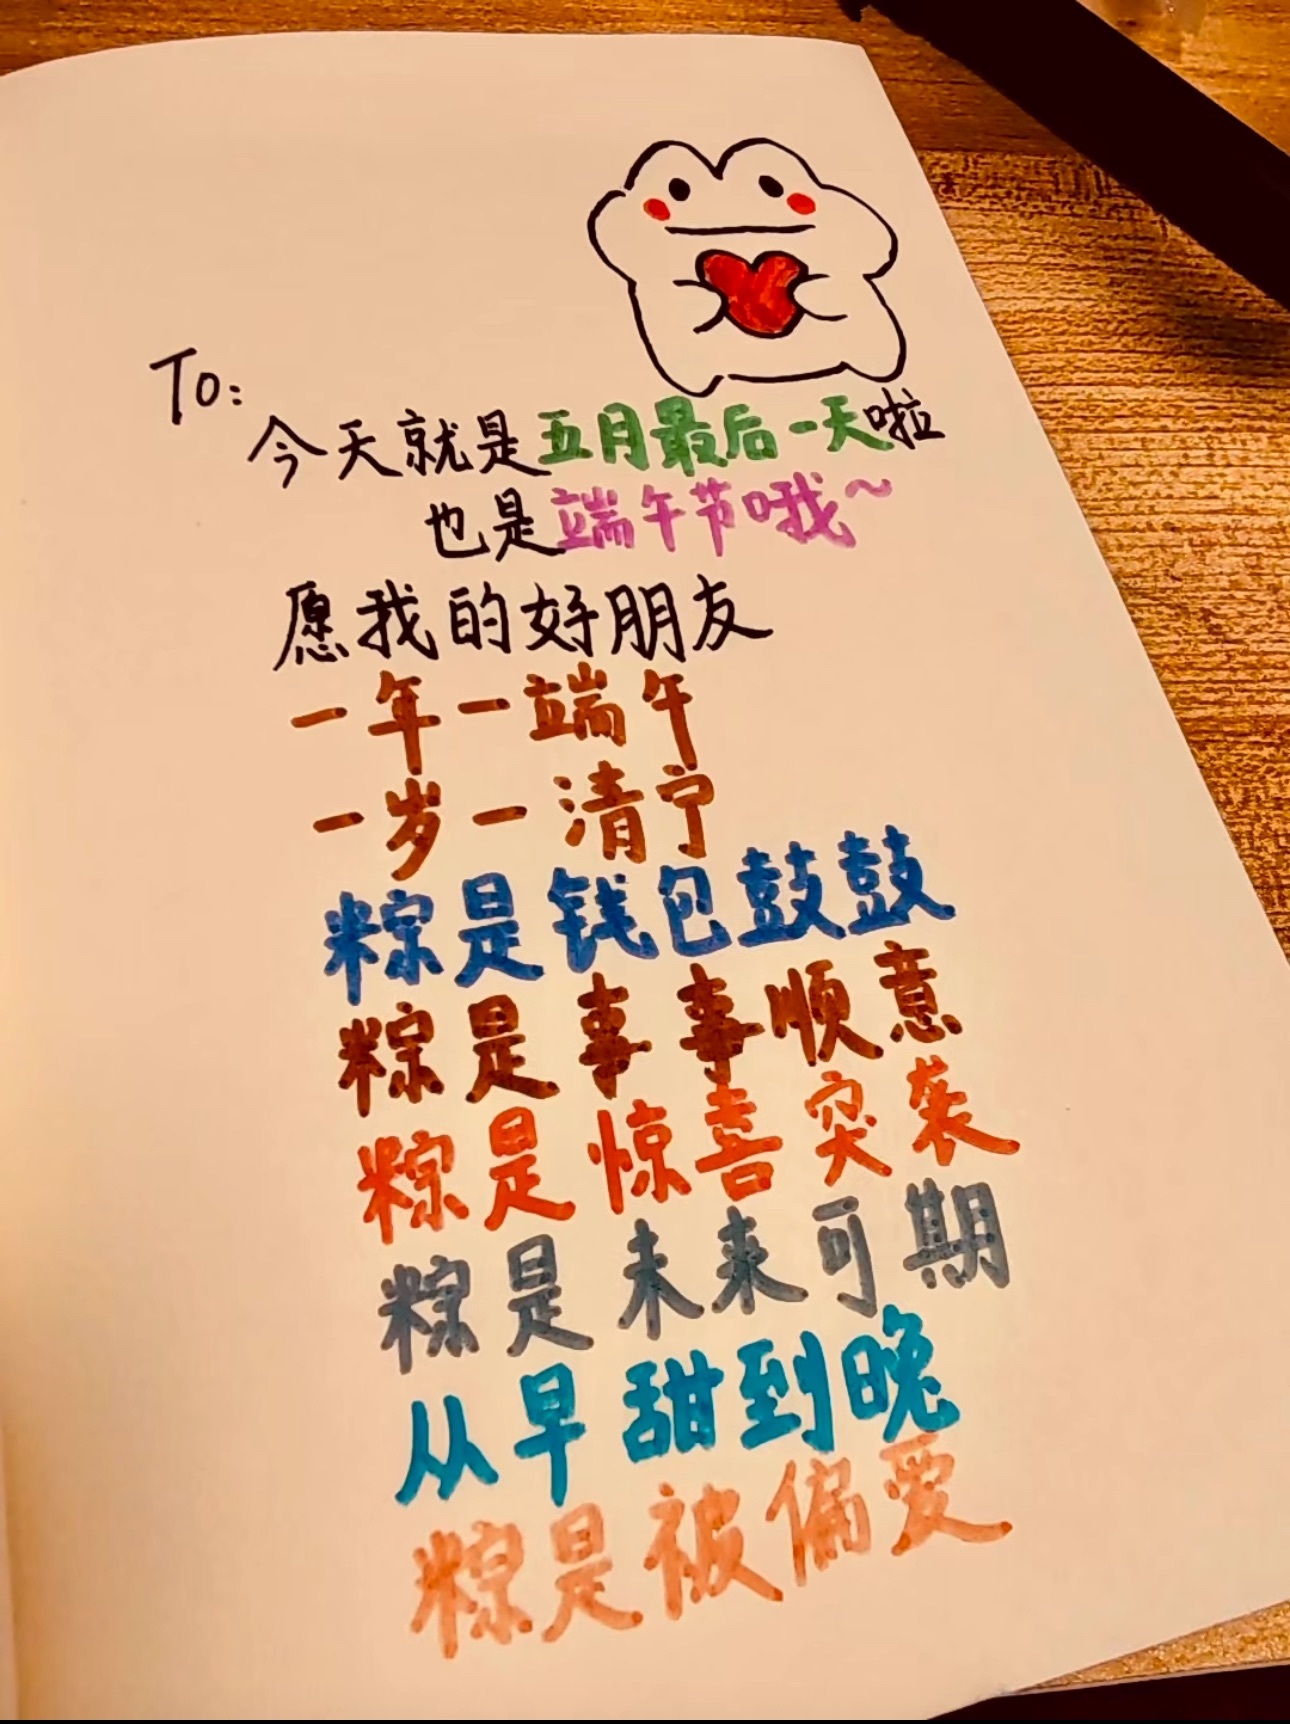 To:
今天就是五月最后一天啦
也是端午节哦~
愿我的好朋友
一年一端午
一岁一清宁
粽是钱包鼓鼓
粽是事事顺意
粽是惊喜突袭
粽是未来可期
从早甜到晚
粽是被偏爱